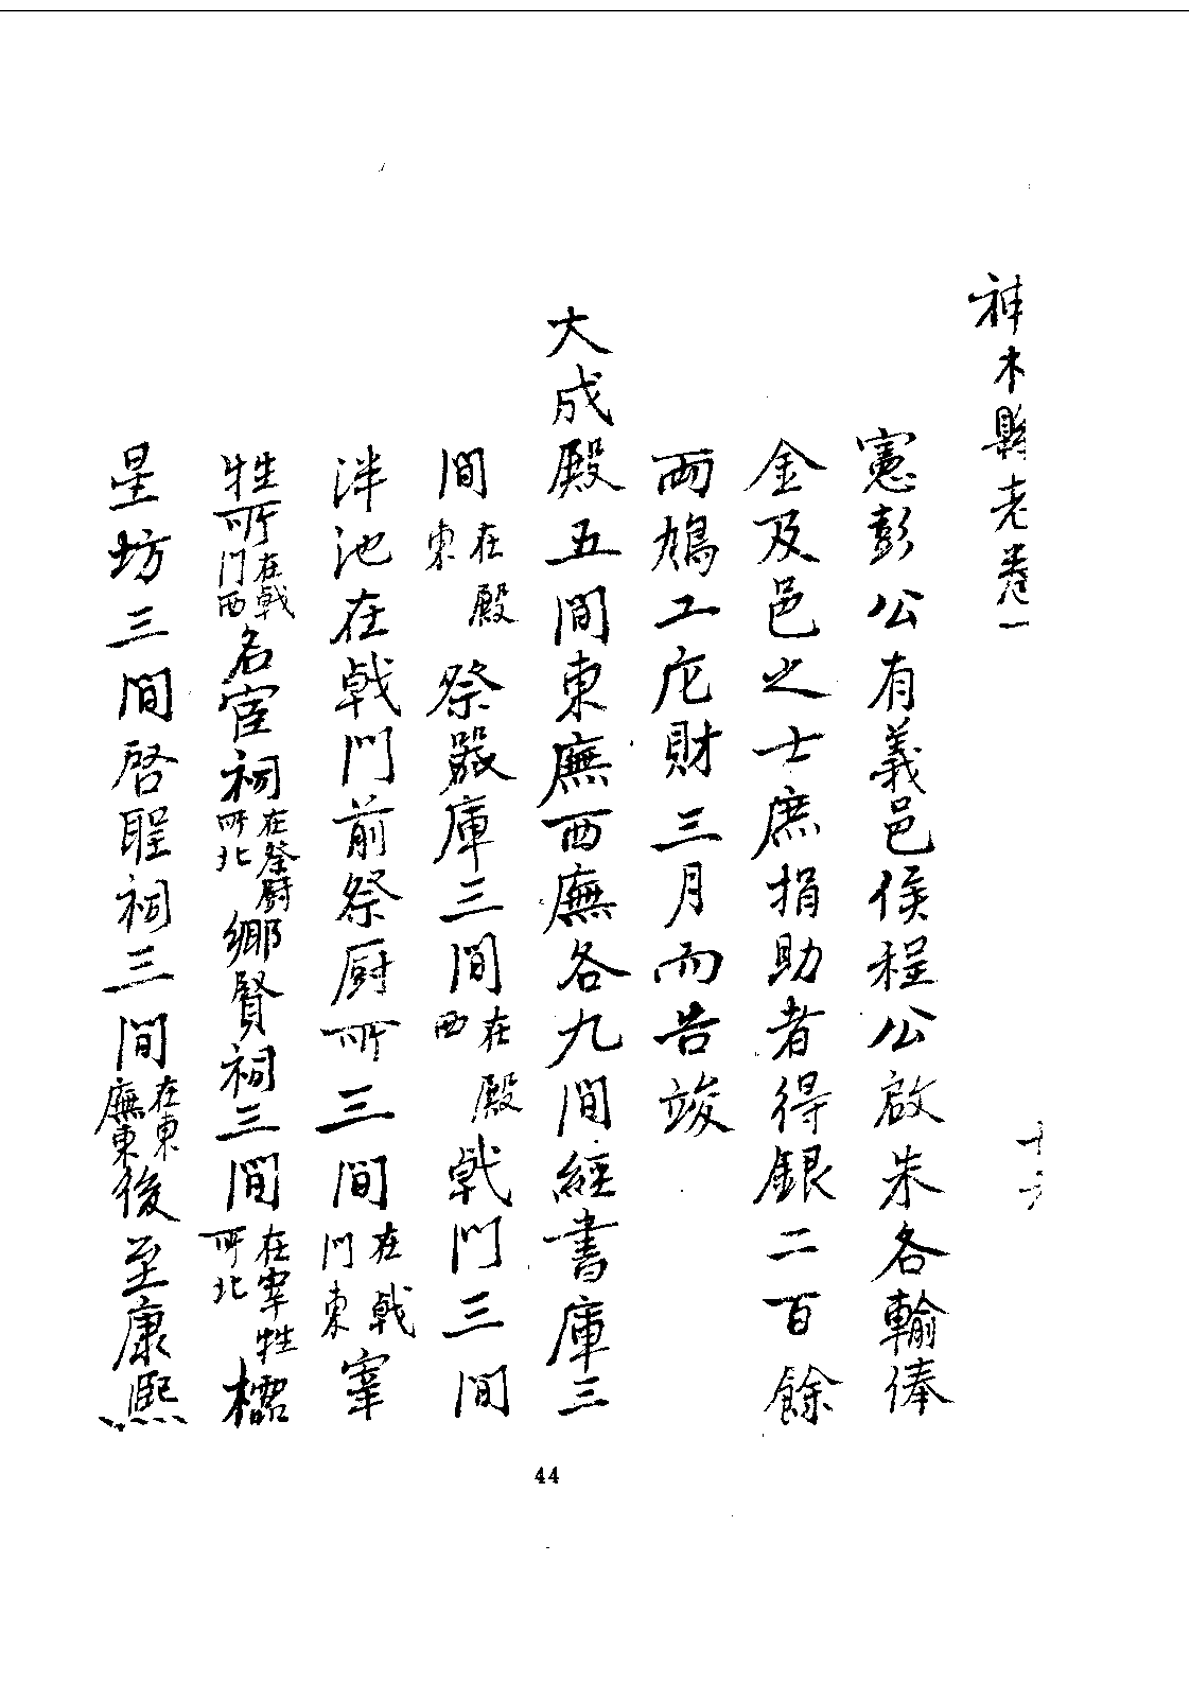 神木縣志卷一
十六
憲彭公有義邑侯程公啟朱各輸俸
金及邑之士庶捐助者得銀二百餘
兩鳩工庀財三月而告竣
大成殿五間東廡西廡各九間經書庫三
間在殿東祭器庫三間在殿西戟門三間
泮池在戟門前祭厨所三間在戟門東宰
牲所在戟門西名宦祠在祭厨所北鄉賢祠三間在宰牲所北櫺
星坊三間啓聖祠三間在東廡東後至康熙
44